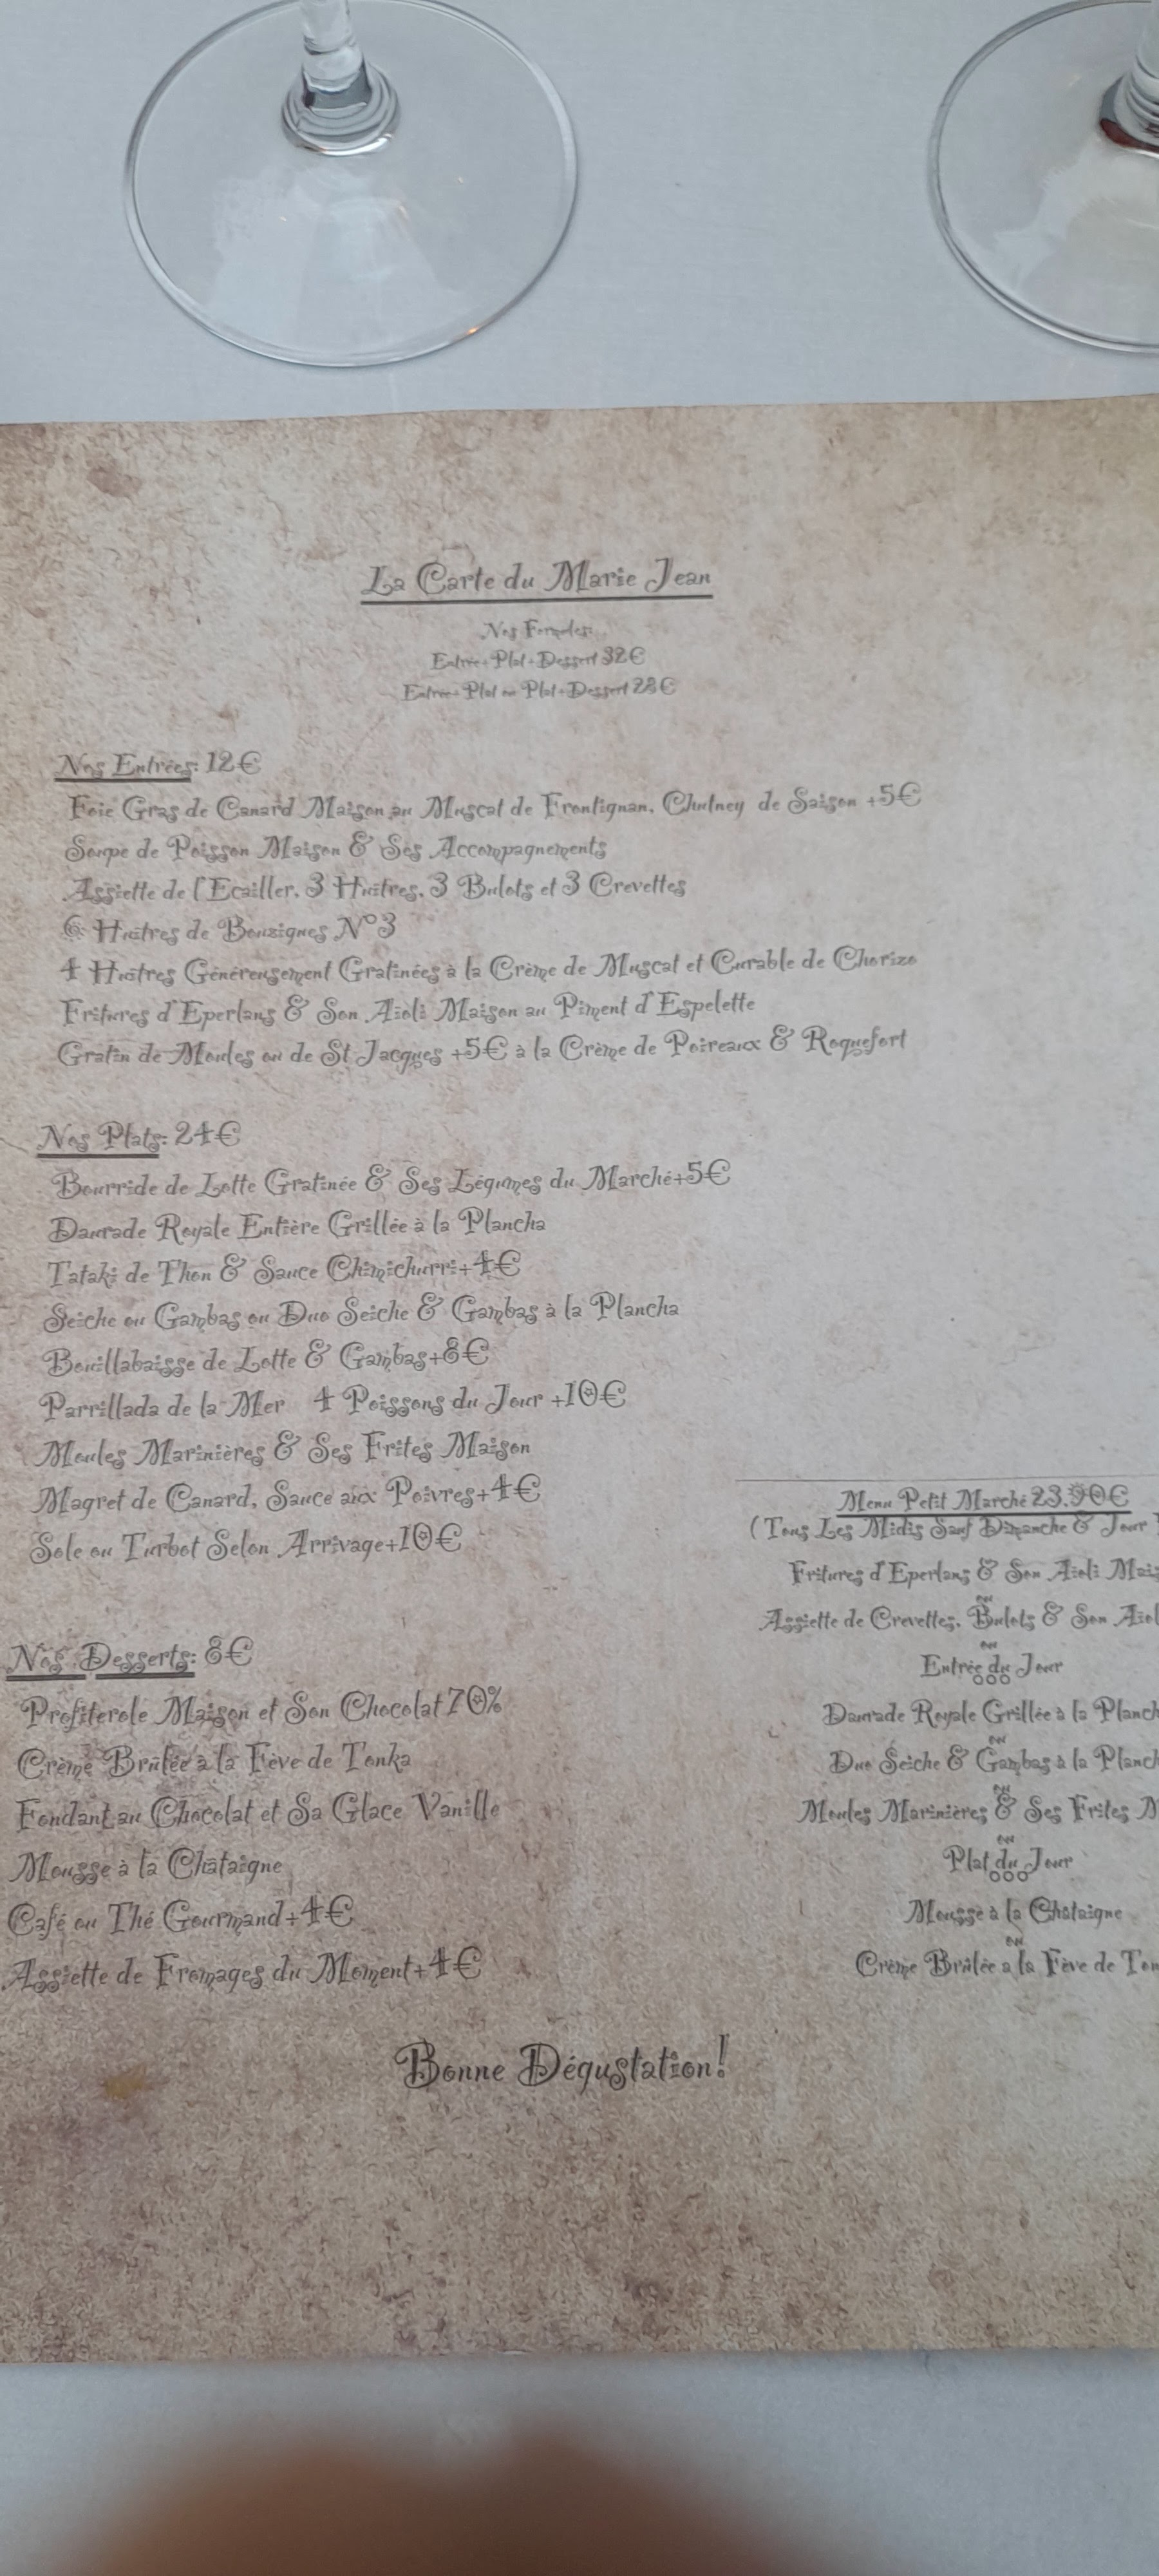 La Carte du Marie Jean
Nos Formules:
Entrée+Plat+Dessert 32€
Entrée+Plat ou Plat+Dessert 28€
Nos Entrées: 12€
Foie Gras de Canard Maison au Muscat de Frontignan, Chutney de Saison +5€
Soupe de Poisson Maison & Ses Accompagnements
Assiette de l'Ecailler, 3 Huîtres, 3 Bulots et 3 Crevettes
6 Huîtres de Bouzigues N°3
4 Huîtres Généreusement Gratinées à la Crème de Muscat et Curable de Chorizo
Fritures d'Eperlans & Son Aïoli Maison au Piment d'Espelette
Gratin de Moules ou de St Jacques +5€ à la Crème de Poireaux & Roquefort
Nos Plats: 24€
Bourride de Lotte Gratinée & Ses Légumes du Marché+5€
Daurade Royale Entière Grillée à la Plancha
Tataki de Thon & Sauce Chimichurri+4€
Seiche ou Gambas ou Duo Seiche & Gambas à la Plancha
Bouillabaisse de Lotte & Gambas+8€
Parrillada de la Mer 4 Poissons du Jour +10€
Moules Marinières & Ses Frites Maison
Magret de Canard, Sauce aux Poivres+4€
Sole ou Turbot Selon Arrivage+10€
Nos Desserts: 8€
Profiterole Maison et Son Chocolat 70%
Crème Brûlée à la Fève de Tonka
Fondant au Chocolat et Sa Glace Vanille
Mousse à la Châtaigne
Café ou Thé Gourmand+4€
Assiette de Fromages du Moment+4€
Menu Petit Marché 23.90€
(Tous Les Midis Sauf Dimanche & Jour
Fritures d'Eperlans & Son Aïoli Mais
ou
Assiette de Crevettes, Bulots & Son Aïol
ou
Entrée du Jour
ooo
Daurade Royale Grillée à la Planch
ou
Duo Seiche & Gambas à la Planch
ou
Moules Marinières & Ses Frites M
ou
Plat du Jour
ooo
Mousse à la Châtaigne
ou
Crème Brûlée a la Fève de Ton
Bonne Dégustation!